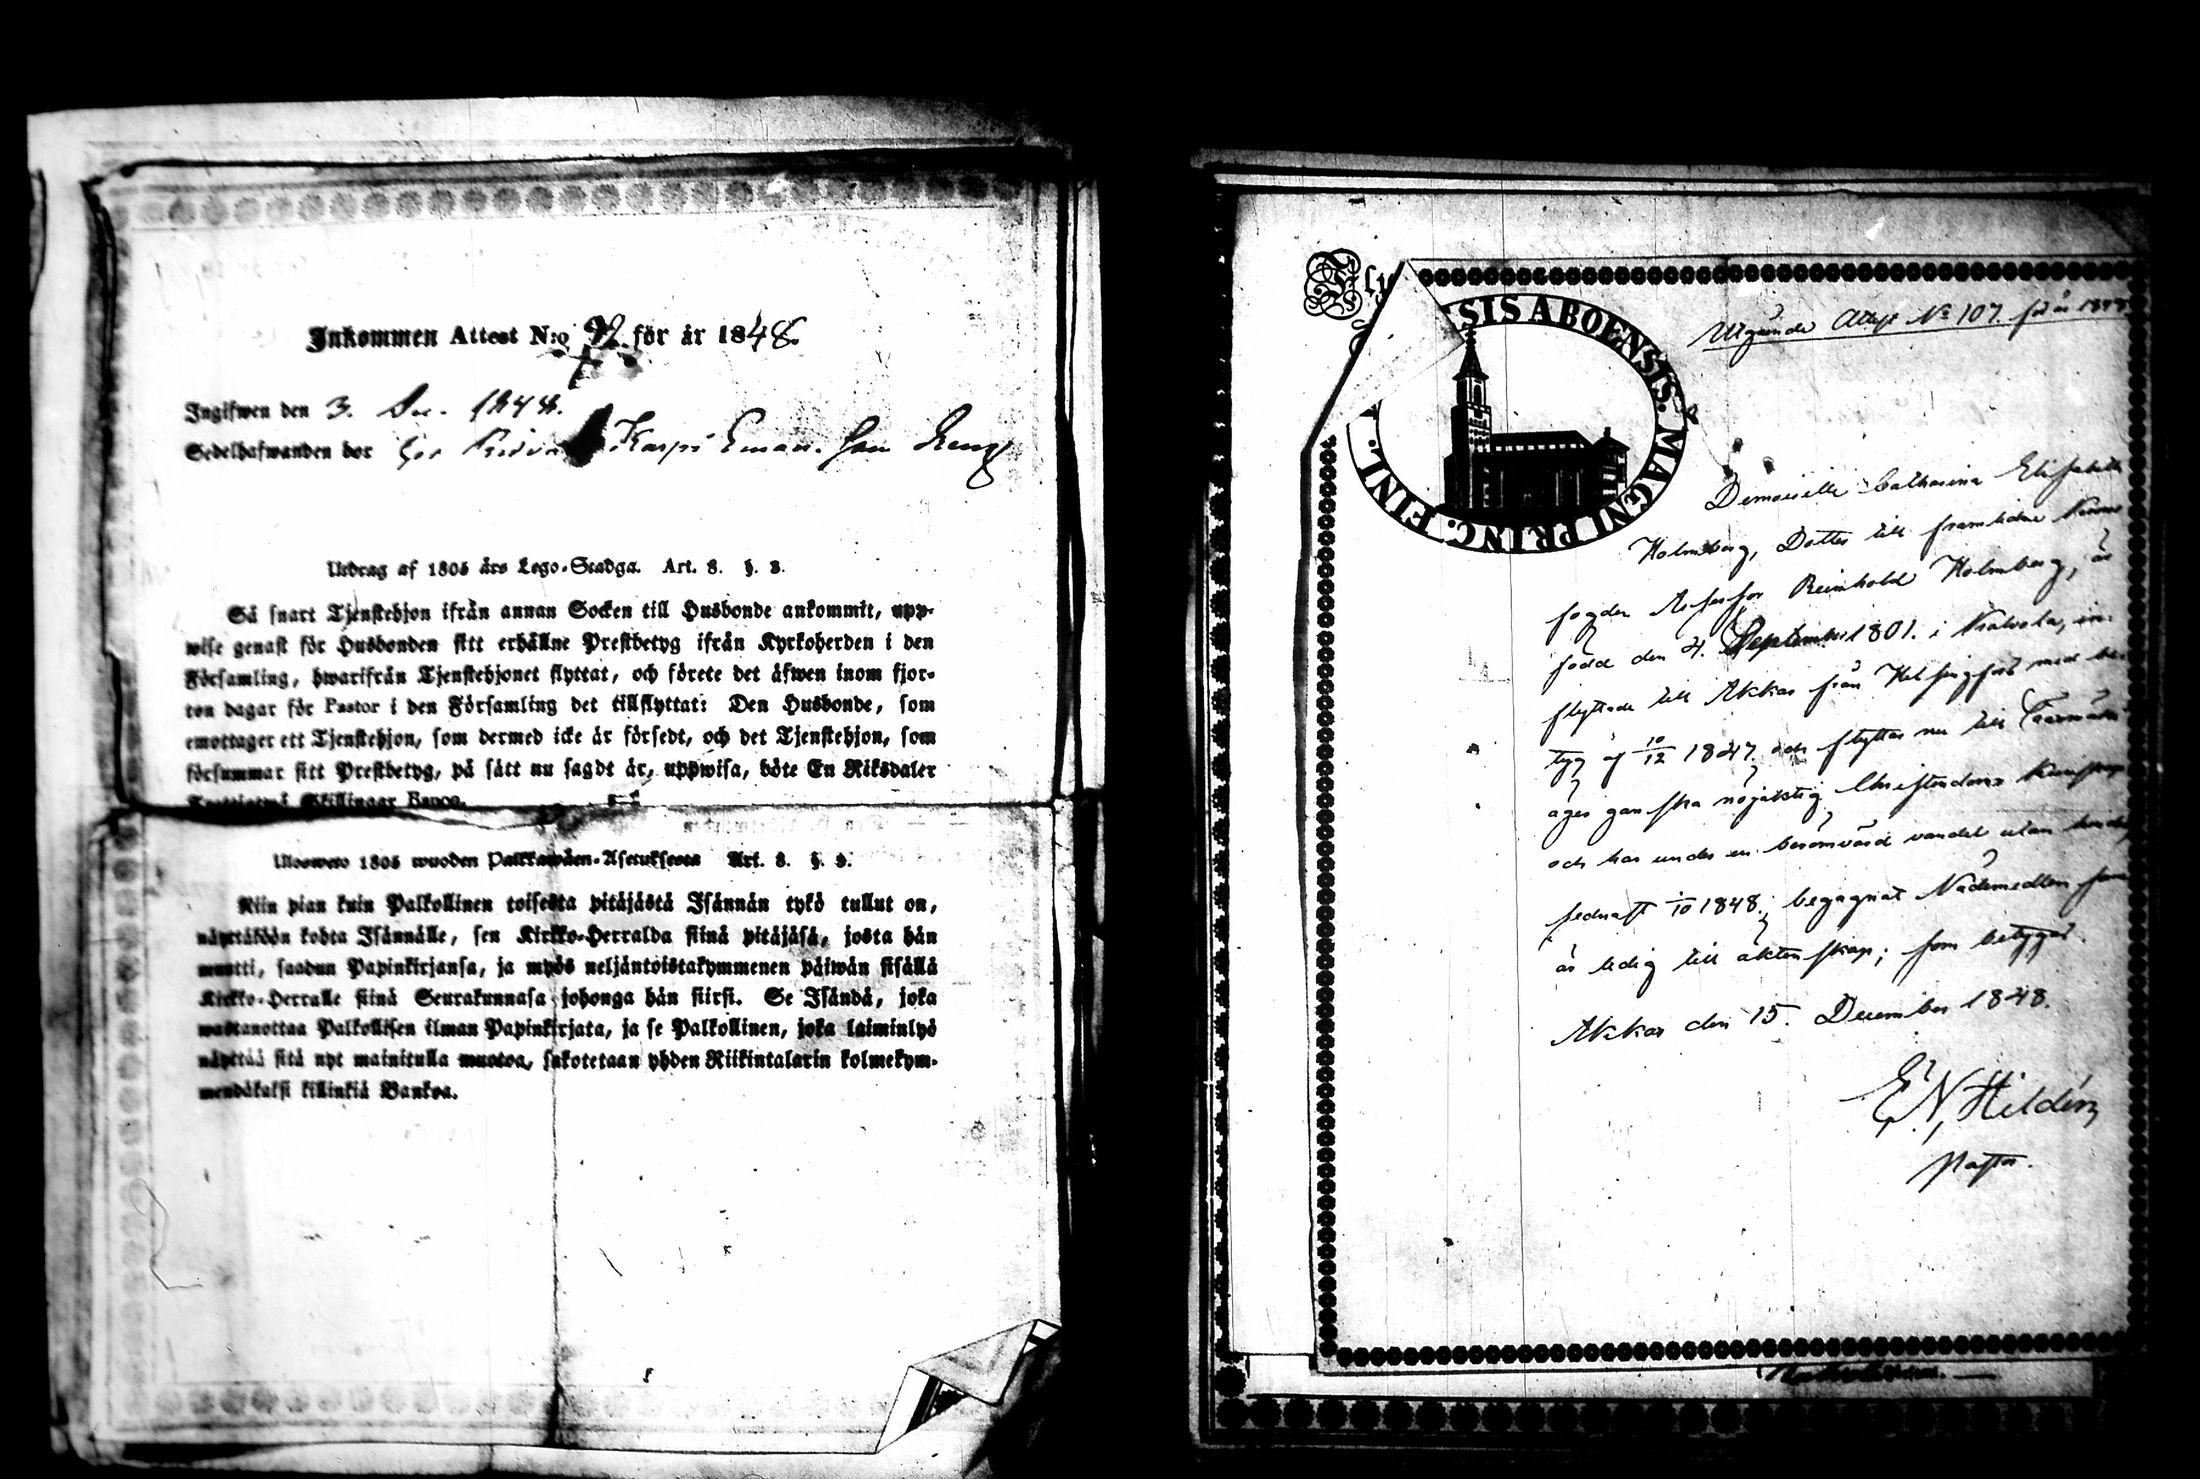 Inkommen Attest N:o 92 för år 1848
Ingifwen den 3. Dec. 1848.
Sedelhafwanden bor hos Karpi Eman. Son
Utdrag af 1805 års Lego-Stadga. Art. 8. §. 3.
Så snart Tjenstehjon ifrån annan Socken till Husbonde ankommit, upp-
wise genast för Husbonden sitt erhållne Prestbetyg ifrån Kyrkoherden i den
Församling, hwarifrån Tjenstehjonet flyttat, och förete det äfwen inom fjor-
ton dagar för Pastor i den Församling det tillflyttat: Den Husbonde, som
emottager ett Tjenstehjon, som dermed icke är försedt, och det Tjenstehjon, som
försummar sitt Prestbetyg, på sätt nu sagdt är, uppwisa, böte En Riksdaler
Trettiotwå Skillingar Banco.
Ulosweto 1805 wuoden Palkkawäen-Asetuksesta Art. 8. §. 3.
Niin pian kuin Palkollinen toisesta pitäjästä Isännän tykö tullut on,
näyttäköön kohta Isännälle, sen Kirkko-Herralda siinä pitäjäsä, josta hän
muutti, saadun Papinkirjansa, ja myös neljäntoistakymmenen päiwän sisällä
Kirkko-Herralle siinä Seurakunnasa johonga hän siirsi. Se Isändä, joka
wastanottaa Palkollisen ilman Papinkirjata, ja se Palkollinen, joka laiminlyö
näyttää sitä nyt mainitulla muotoa, sakotetaan yhden Riikintalarin kolmekym-
mendäkaksi killinkiä Bankoa.
SIS ABOENSIS. MAGNI PRINC. FINL.
Utgående Attest No 107. för år 1848
Demoiselle Catharina Elisabeth
Holmberg, Dotter till framlidne
fogden Assessor Reinhold Holmberg, är
född den 4. September 1801. i Kalvola, in-
flyttade till Akkas från Helsingfors med be-
tyg af 10/12 1847, och flyttar nu till
äger ganska nöjaktig Christendoms Kunskap
och har under en berömvärd vandel utan hinder,
sednast 1/10 1848, begagnat Nådemedlen samt
är ledig till äktenskap; som betygas.
Akkas den 15. December 1848.
E. N. Hildén
Pastor.